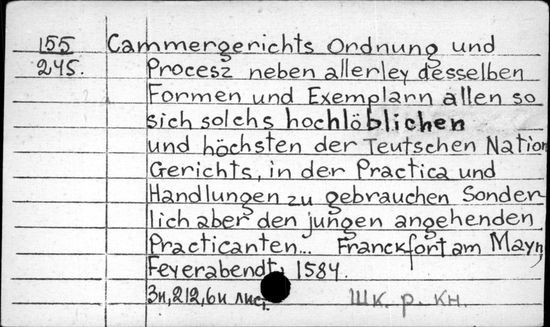 155 Cammergerichts Ordnung und
245. Procesz neben allerley desselben
Formen und Exemplarn allen so
sich solchs hochlöblichen
und höchsten der Teutschen Nation
Gerichts, in der Practica und
Handlungen zu gebrauchen Sonder-
lich aber den jungen angehenden
Practicanten... Franckfort am Mayn,
Feyerabendt, 1584.
3н, 212, 6н лист.
Шк. р. кн.